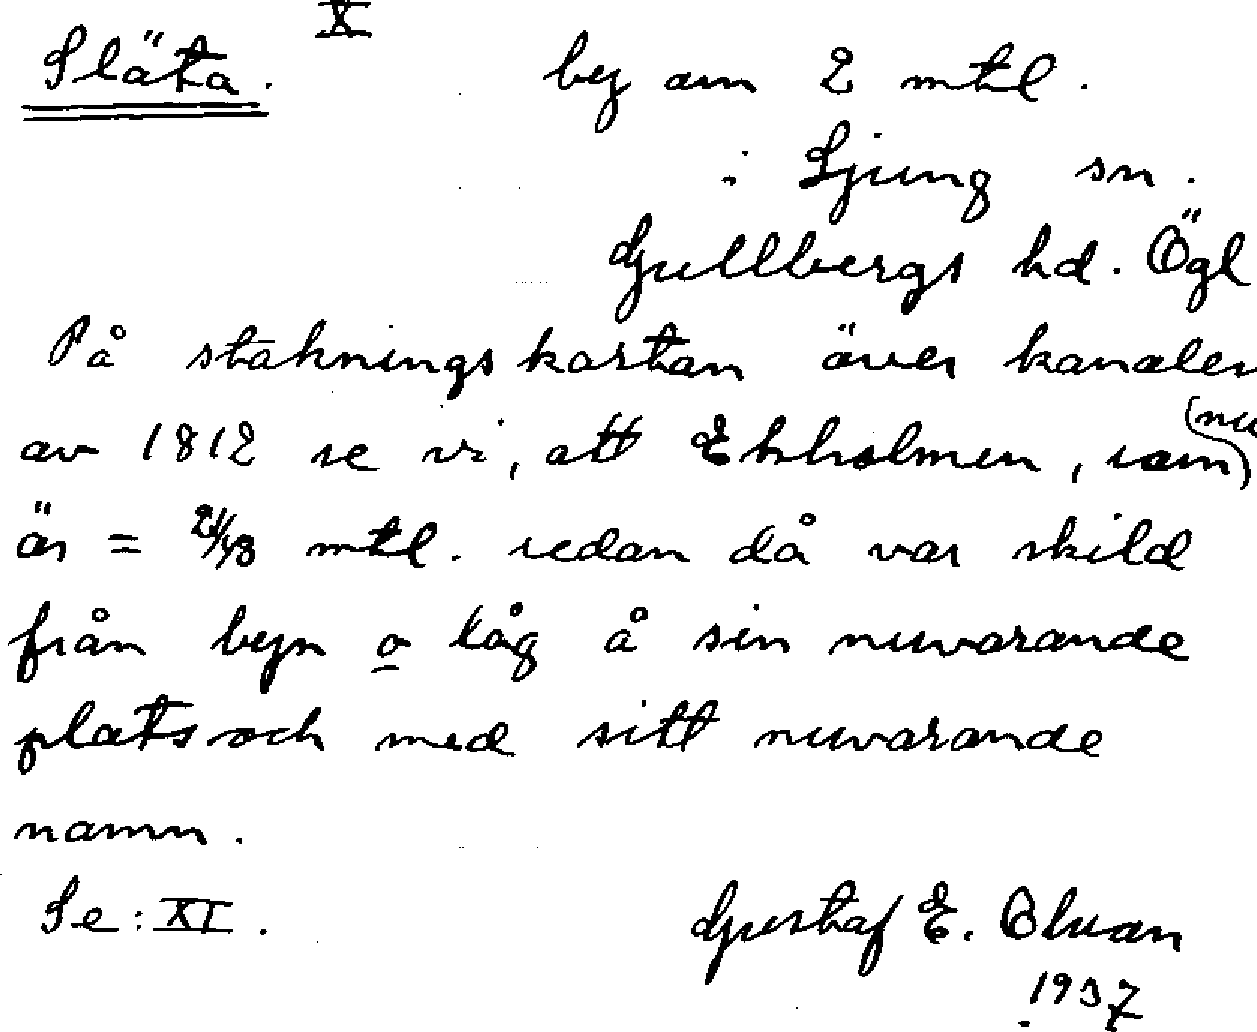 X
Släta. by om 2 mtl.
i Ljung sn.
Gullbergs hd. Ögl
På stakningskartan över kanalen
av 1812 se vi, att Ekholmen, som (nu)
är = 21/48 mtl. redan då var skild
från byn o låg å sin nuvarande
plats och med sitt nuvarande
namn.
Se: XI.
Gustaf E. Olson
1937